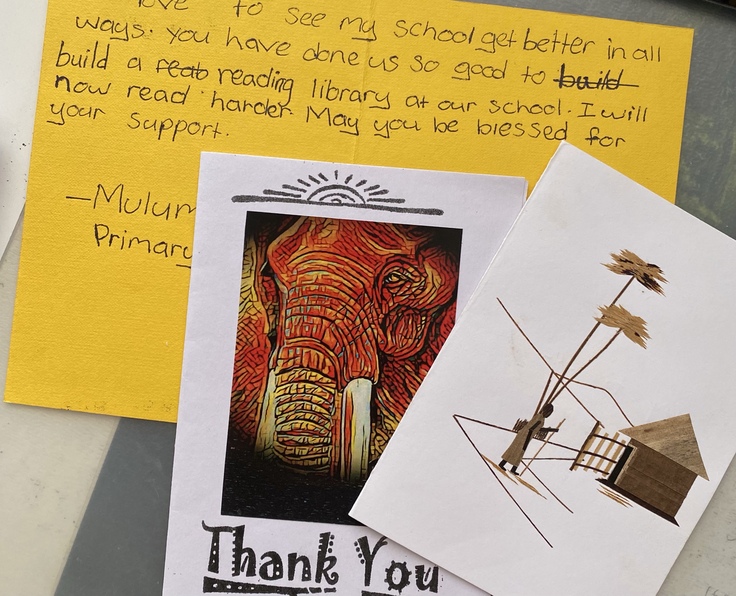 love to see my school get better in all
ways. You have done us so good to build
build a reab reading library at our school. I will
now read harder May you be blessed for
your support.
—Mulum
Primary
Thank You